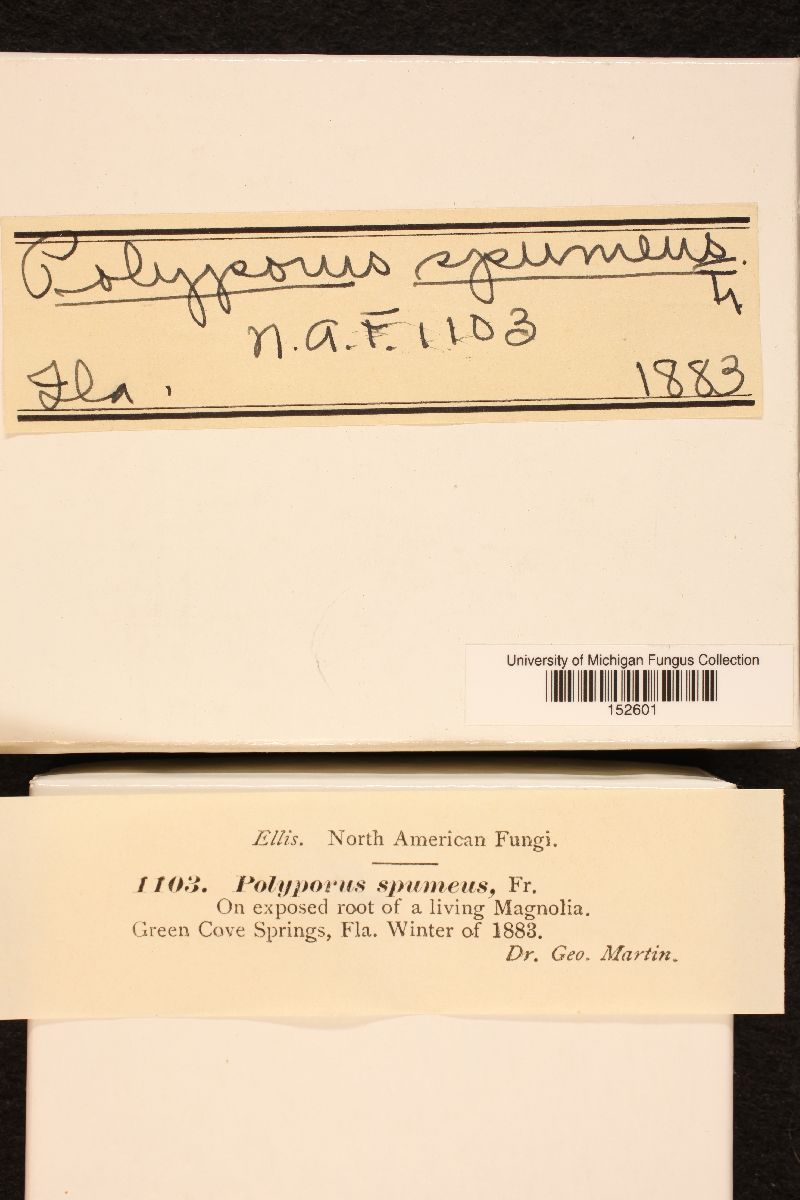 Polyporus spumeus.
Fr
N.A.F. 1103
Fla. 1883
University of Michigan Fungus Collection
152601
Ellis. North American Fungi.
1103. Polyporus spumeus, Fr.
On exposed root of a living Magnolia.
Green Cove Springs, Fla. Winter of 1883.
Dr. Geo. Martin.